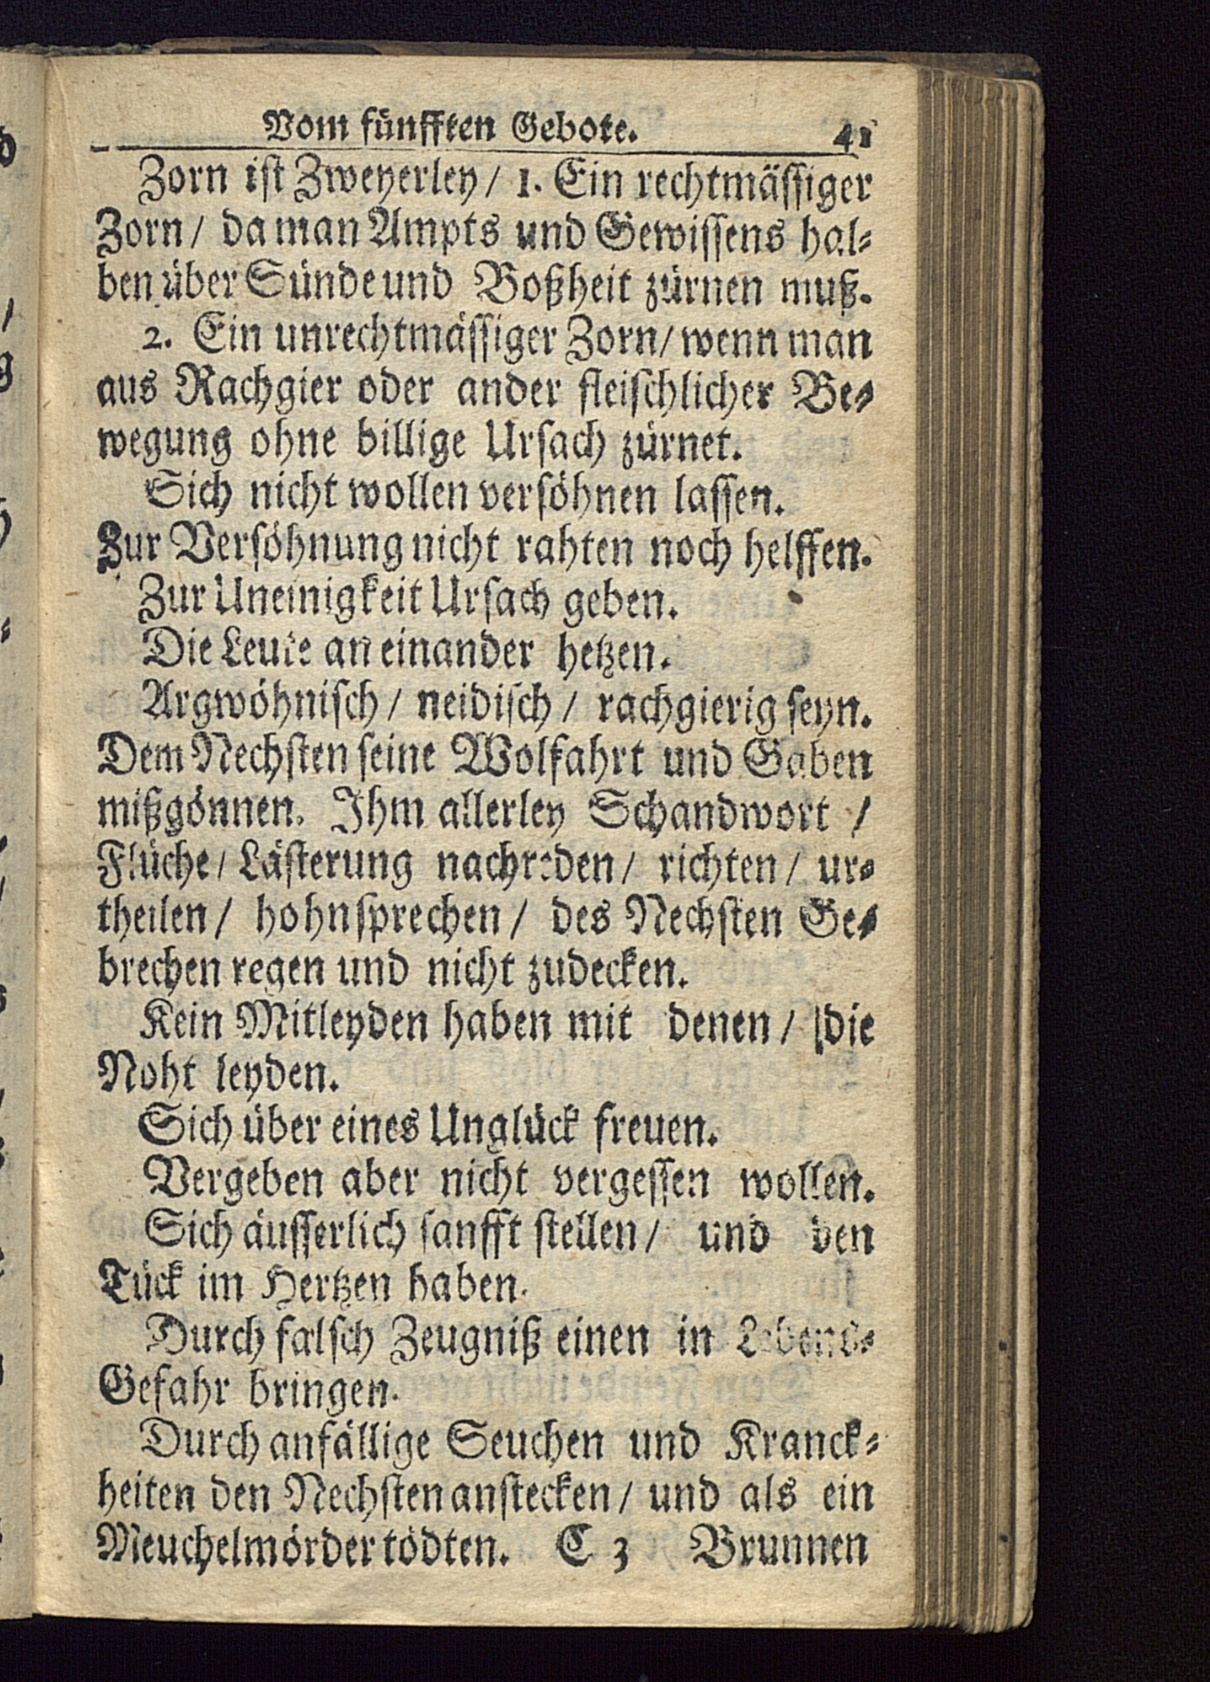 Vom fünfften Gebote. 41
Zorn ist Zweyerley / 1. Ein rechtmässiger
Zorn / da man Ampts und Gewissens hal-
ben über Sünde und Boßheit zürnen muß.
2. Ein unrechtmässiger Zorn / wenn man
aus Rachgier oder ander fleischlicher Be-
wegung ohne billige Ursach zürnet.
Sich nicht wollen versöhnen lassen.
Zur Versöhnung nicht rahten noch helffen.
Zur Uneinigkeit Ursach geben.
Die Leute an einander hetzen.
Argwöhnisch / neidisch / rachgierig seyn.
Dem Nechsten seine Wolfahrt und Gaben
mißgönnen. Ihm allerley Schandwort /
Flüche / Lästerung nachreden / richten / ur-
theilen / hohnsprechen / des Nechsten Ge-
brechen regen und nicht zudecken.
Kein Mitleyden haben mit denen / die
Noht leyden.
Sich über eines Unglück freuen.
Vergeben aber nicht vergessen wollen.
Sich äusserlich sanfft stellen / und den
Tück im Hertzen haben.
Durch falsch Zeugniß einen in Lebens-
Gefahr bringen.
Durch anfällige Seuchen und Kranck-
heiten den Nechsten anstecken / und als ein
Meuchelmörder tödten. C 3 Brunnen